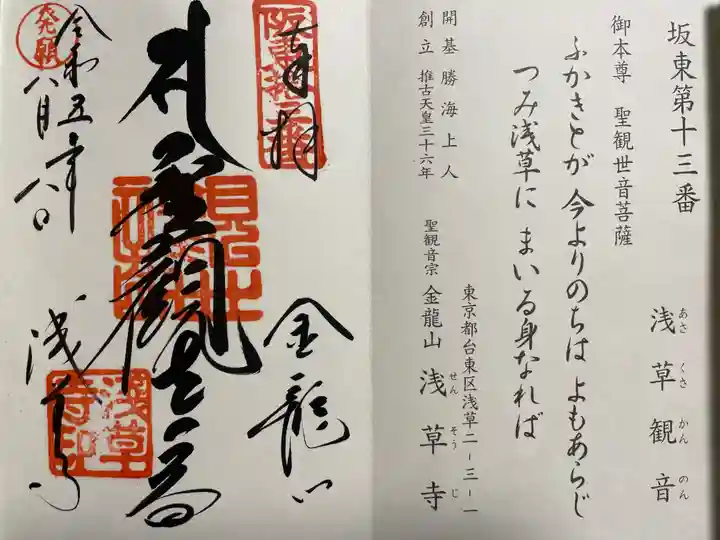 坂東第十三番
浅草観音
あさくさかんのん
御本尊 聖観世音菩薩
ふかきとが 今よりのちは よもあらじ
つみ浅草に まいる身なれば
開基 勝海上人
創立 推古天皇三十六年
東京都台東区浅草二-三-一
聖観音宗 金龍山 浅草寺
せんそうじ
奉拝
金龍山
聖観世音
浅草寺
令和五年
八月八日
発願
浅草寺印